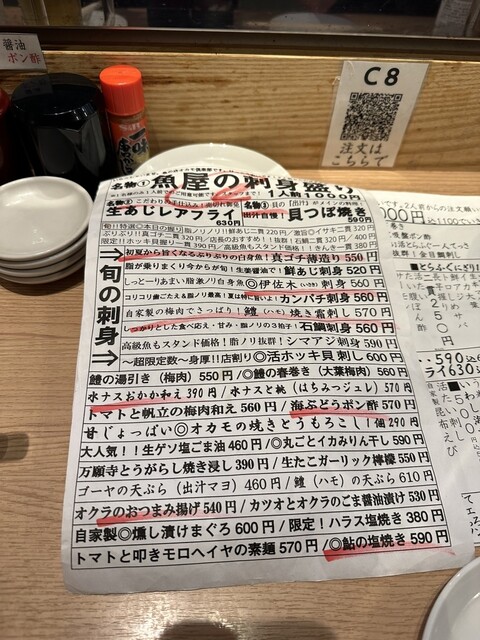 醤油
ポン酢
C8
注文は
こちらで
一味
名物① 魚屋の刺身盛り
1人前1000円
名物② 生あじレアフライ
630円
名物③ 貝の「出汁」がメインの料理
出汁自慢！貝つぼ焼き
590円
ぶりぶり!!真ゴチ二貫320円
限定!!ホッキ貝握り一貫390円
抜群！石鯛二貫340円
高級魚もスタンド価格！！きんき一貫380
→旬の刺身→
初夏から旨くなるぷりぷりの白身魚！真ゴチ薄造り550円
脂が乗りまくり今からが旬！生姜醤油で！鮮あじ刺身520
しっとーりあまい脂激ノリ白身魚◎伊佐木（いさき）刺身560
コリコリ歯ごたえ＆脂ノリ最高！夏は特に旨いよ！カンパチ刺身560
自家製の梅肉でさっぱり！鱧（ハモ）焼き霜刺し570円
しっかりとした食べ応え・甘み・脂ノリの3拍子！石鯛刺身560円
高級魚もスタンド価格！脂ノリ抜群！シマアジ刺身590
～超限定数～身厚!!店割り◎活ホッキ貝刺し600円
鱧の湯引き（梅肉）550円/◎鱧の春巻き（大葉梅肉）560円
水ナスおかか和え390円/水ナスと桃（はちみつジュレ）570円
トマトと帆立の梅肉和え560円/海ぶどうポン酢570円
甘じょっぱい◎オカモの焼きとうもろこし！1個290円
大人気！！生ゲソ塩ごま油460円/◎丸ごとイカみりん干し590円
万願寺とうがらし焼き浸し390円/生たこガーリック檸檬550円
ゴーヤの天ぷら（出汁マヨ）460円/鱧（ハモ）の天ぷら610円
オクラのおつまみ揚げ540円/カツオとオクラのごま醤油漬け530円
自家製◎燻し漬けまぐろ600円/限定！ハラス塩焼き380円
トマトと叩きモロヘイヤの素麺570円/◎鮎の塩焼き590円